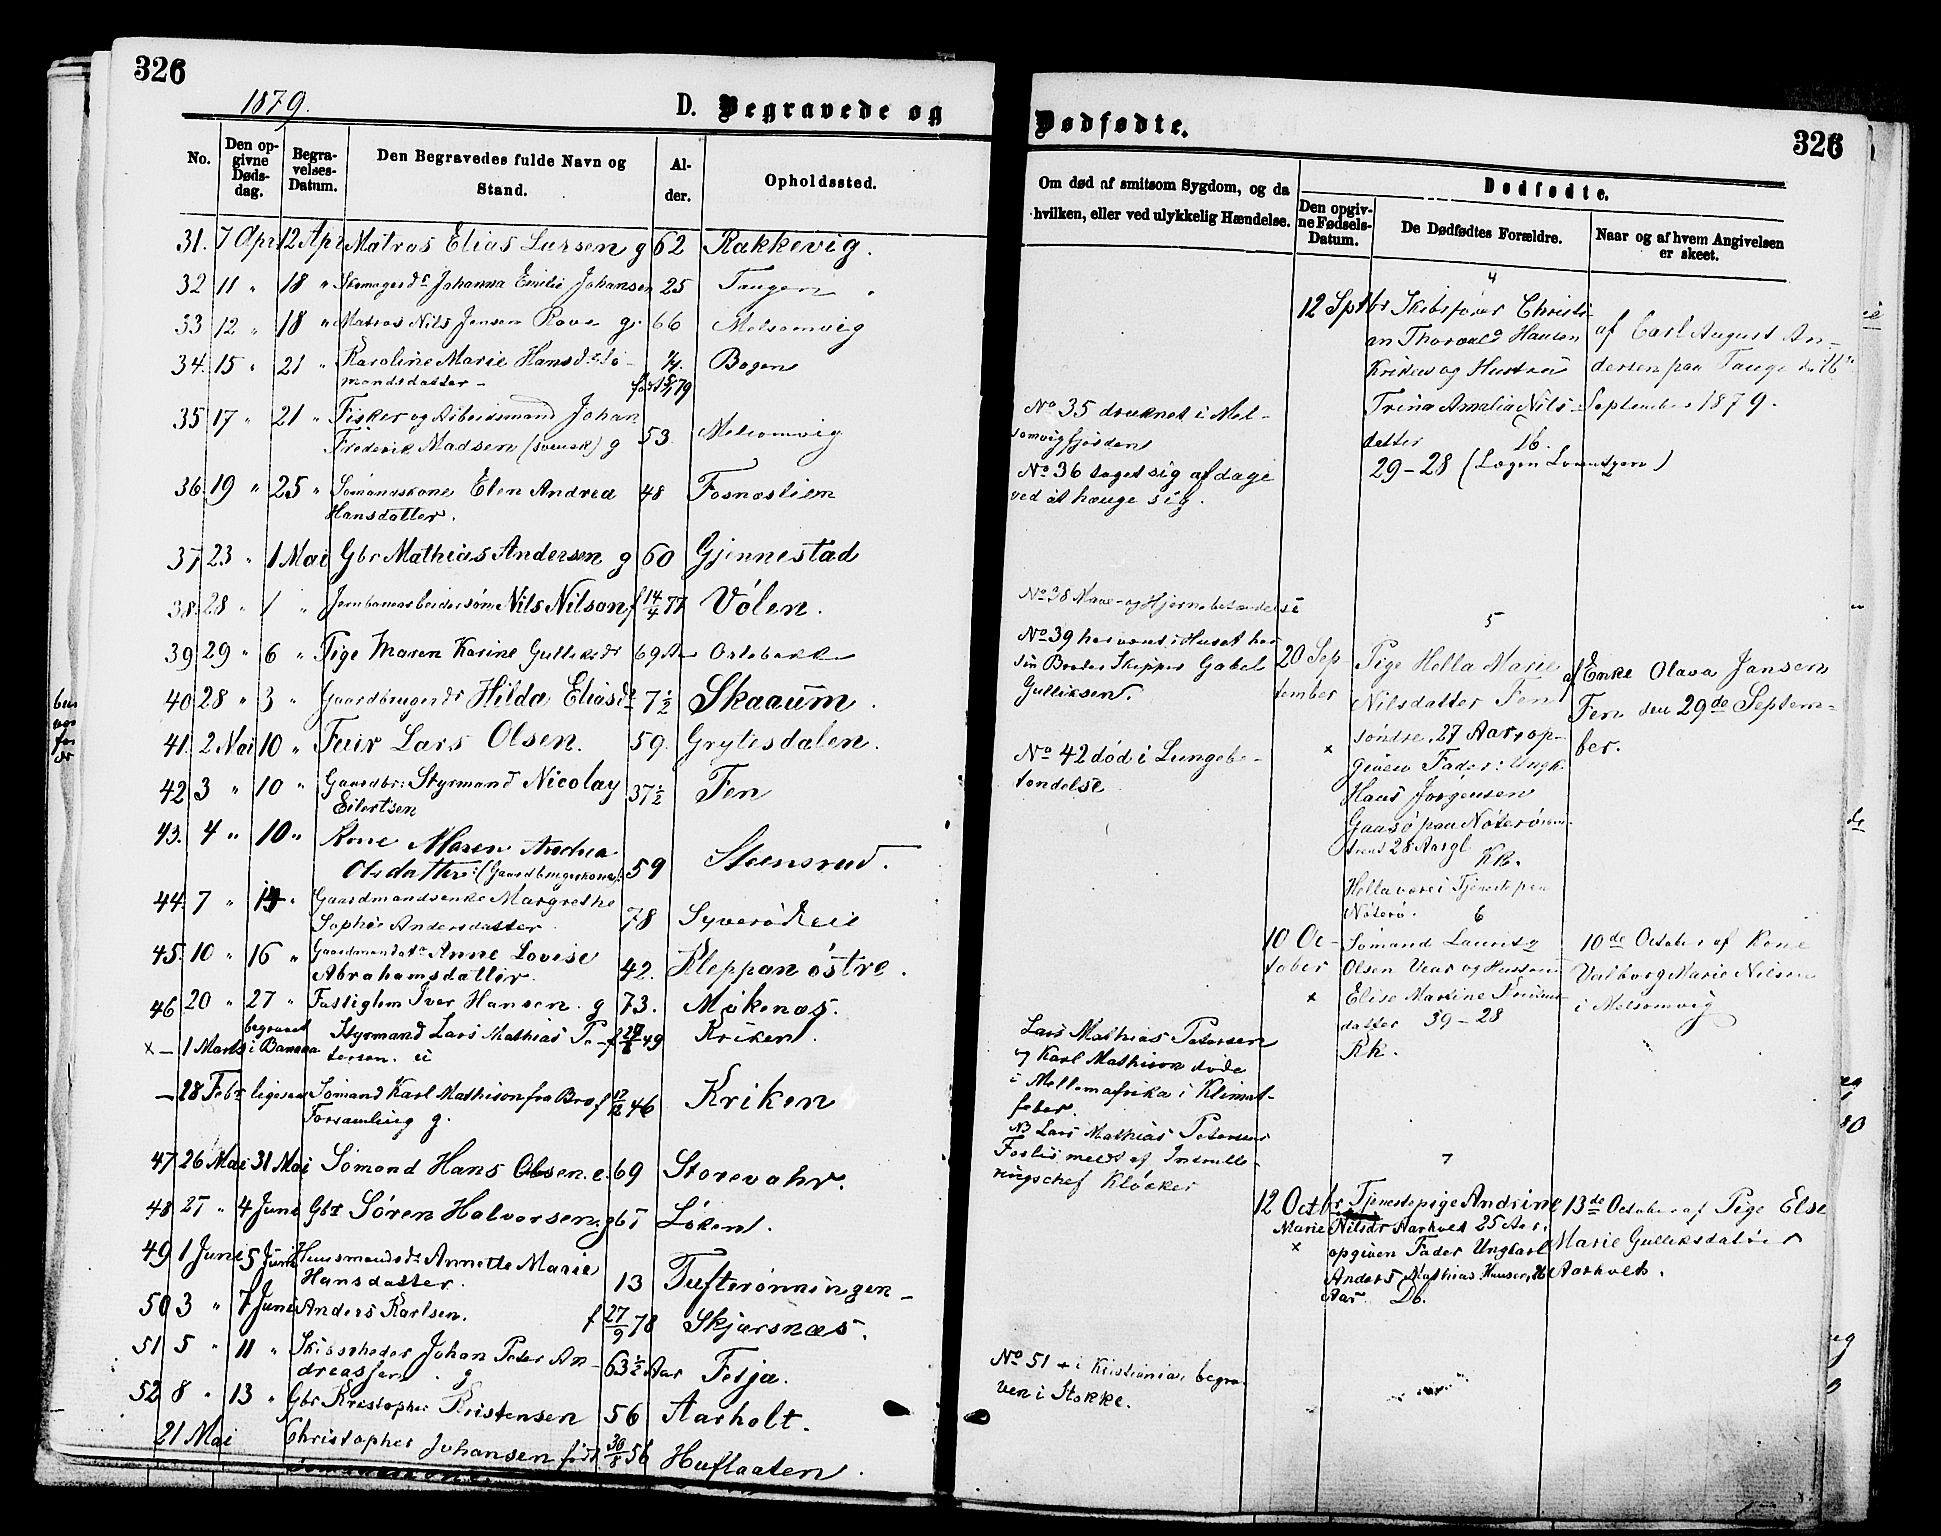 326
1879.
D. Begravede og
No. Den opgivne Dødsdag. Begravelses-Datum. Den Begravedes fulde Navn og Stand. Alder. Opholdssted.
31. 7 Apr 12 Apr Matros Elias Larsen g 62 Rakkevig.
32 11 " 18 " Johanna Emilie Johansen 25 Tangen
33 12 " 18 " Matros Nils Jensen Rove g. 66 Melsomvig
34. 15 " 21 " Karoline Marie Hansd. Sø-
mandsdatter - Bogen
35 17 " 21 " Fisker og Arbeidsmand Johan
Frederik Madsen (svensk) g 53. Melsomvig
36. 19 " 25 " Sømandskone Elen Andrea 48 Fosnæstien
Hansdatter.
37 23 " 1 Mai Gbr Mathias Andersen g 60 Gjennestad
38. 28 " 1 " Jernbanearbeidersøn Nils Nilson f 14/4 77 Vølen.
39 29 " 6 " Pige Maren Karine Gulliksdr 69 Aar
40 28 " 3 " Gaardbrugerdr Hilda Eliasd 7½ Skaaum.
41. 2 Mai 10 " Lars Olsen. 59. Grytesdalen.
42 3 " 10 " Gaardbr: Styrmand Nicolay
Eilertsen 37½ Fen
43. 4 " 10 " Kone Maren Andrea
Olsdatter: (Gaardbrugerkone). 59 Steensrud.
44. 7 " 14 " Gaardmandsenke Margrethe
Sophie Andersdatter 78 Syverød
45. 10 " 16 " Anne Lovise
Abrahamsdatter. 42. Kleppan østre.
46 20 " 27 " Fattiglem Iver Hansen. g 73. Møkenæs.
x — 1 Marts begravet i Banana Styrmand Lars Mathias Pe-
tersen. u 49 Kriken.
— 28 Febr ligesaa Sømand Karl Mathison fra Br
Forsamling g. 46 Kriken
47 26 Mai 31 Mai Sømand Hans Olsen. e. 69 Storevahr.
48 27 " 4 Juni Gbr Søren Halvorsen. g 67 Løken.
49 1 June 5 Juni Huusmandsdr Annette Marie
Hansdatter. 13 Tufterønningen -
50 3 " 7 Juni Anders Karlsen. f 27/9 78 Skjærsnæs.
51 5 " 11 " Skibsrheder Johan Peter An-
dreassen. g 63½ Aar Fesja.
52 8 " 13 " Gbr Kristopher Kristensen 56 Aarholt.
21 Mai Christopher Johansen født 30/8 56 Huflaaten.
Dødfødte.
326
Om død af smitsom Sygdom, og da
hvilken, eller ved ulykkelig Hændelse.
Dødfødte.
Den opgivne Fødsels-Datum. De Dødfødtes Forældre. Naar og af hvem Angivelsen er skeet.
No 35 druknet i Mel-
somvigfjorden
No 36 taget sig af dage
ved at hænge sig.
No 38 Nave- og Hjernebetændelse
No 39 har været i Huset hos
sin Broder Skipper Gabel
Gulliksen.
No 42 død i Lungebe-
tændelse
Lars Mathias Petersen
og Karl Mathison døde
i Mellemafrika i Klimat-
feber.
NB Lars Mathias Petersens
af Indrulle-
ringschef Kløcker
No 51 + i Kristiania, begra-
ven i Stokke.
4
12 Septbr Skibsfører Christi-
an Thorvald Hansen
Kriken og Hustru
Trine Amalia Nils-
datter 16.
29 - 28 (Løgen Lorentzen)
af Carl August An-
dersen paa Tange d. 16de
September 1879.
5
20 September
x
Pige Hella Marie
Nilsdatter Fen
søndre, 27 Aar, op-
given Fader: Ungk.
Hans Jørgensen
Gaasø paa Nøterø
28 Aar gl
Kk.
Hella være i Tjeneste paa
Nøterø.
af Enke Olava Jansen
Fen den 29de Septem-
ber.
6
10 October
x
Sømand Lauritz
Olsen Vear og Hustru
Elise Martine
datter 39 - 28
Kk.
10de October af Kone
Valborg Marie Nilsen
i Melsomvig
7
12 Octbr
x
Tjenestepige Andrine
Marie Nilsdr Aarholt 25 Aar,
opgiven Fader Ungkarl
Anders Mathias Hansen, 26
Aar. Db.
13de October af Pige Else
Marie Gulliksdatter
Aarholt.